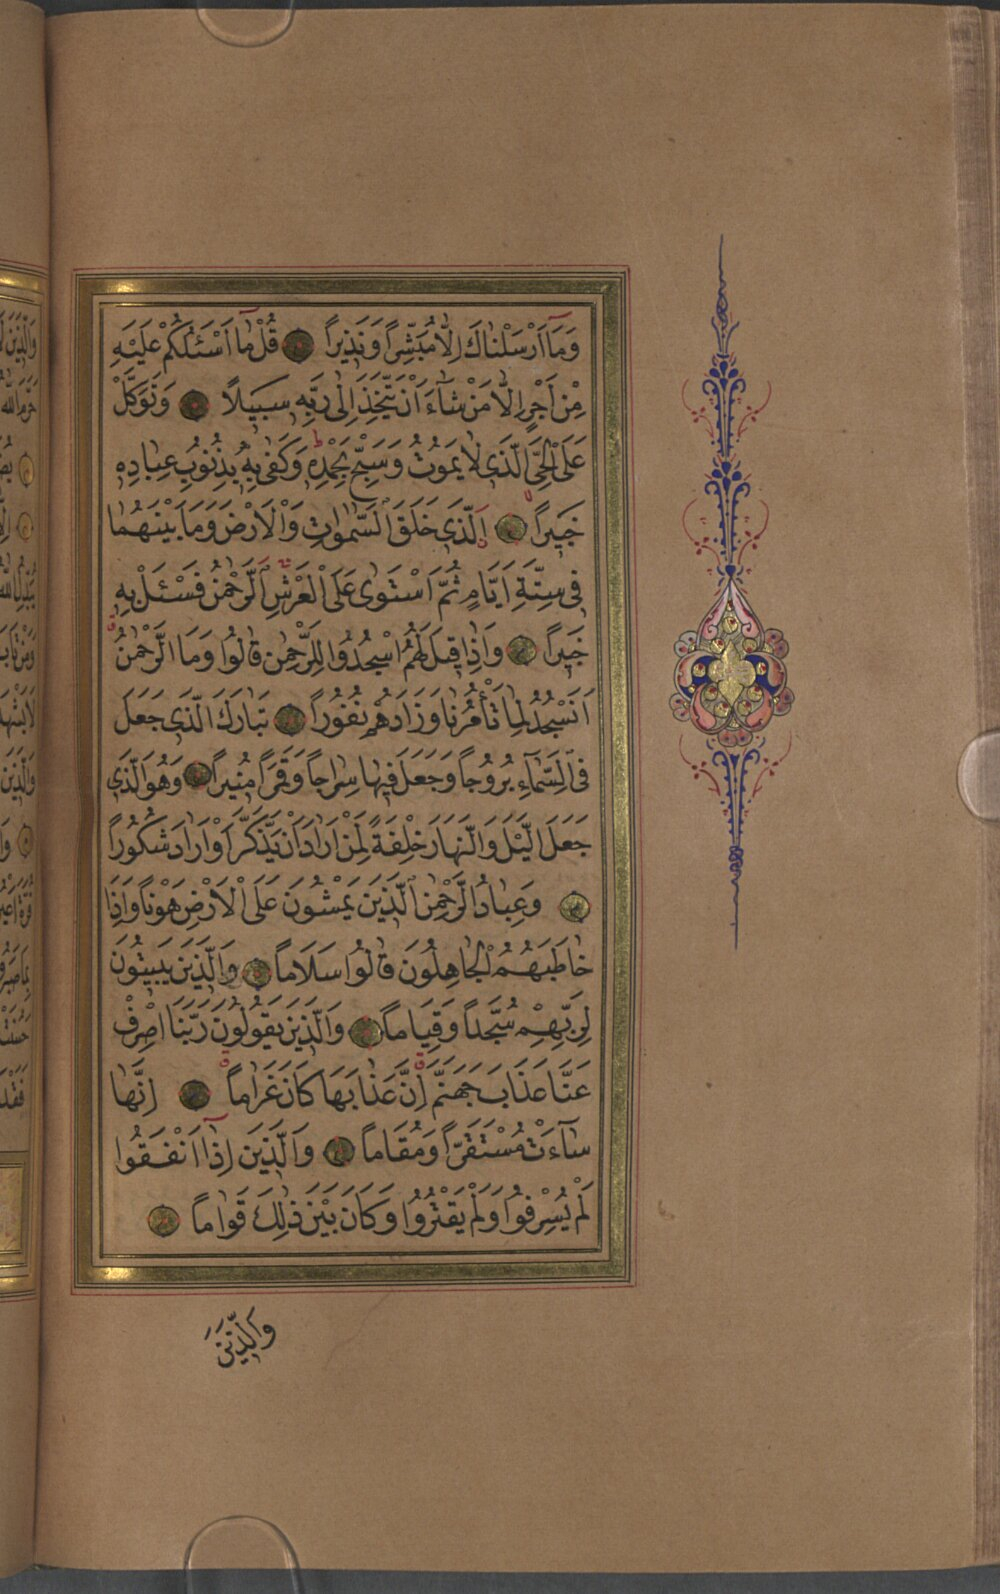 وَمَٓا اَرْسَلْنَاكَ اِلَّا مُبَشِّرًا وَنَذِيرًا قُلْ مَٓا اَسْئَلُكُمْ عَلَيْهِ
مِنْ اَجْرٍ اِلَّا مَنْ شَٓاءَ اَنْ يَتَّخِذَ اِلٰى رَبِّهٖ سَبِيلًا وَتَوَكَّلْ
عَلَى الْحَيِّ الَّذِي لَا يَمُوتُ وَسَبِّحْ بِحَمْدِهٖ وَكَفٰى بِهٖ بِذُنُوبِ عِبَادِهٖ
خَبِيرًا اَلَّذِي خَلَقَ السَّمٰوَاتِ وَالْاَرْضَ وَمَا بَيْنَهُمَا
فِي سِتَّةِ اَيَّامٍ ثُمَّ اسْتَوٰى عَلَى الْعَرْشِ اَلرَّحْمٰنُ فَسْئَلْ بِهٖ
خَبِيرًا وَاِذَا قِيلَ لَهُمُ اسْجُدُوا لِلرَّحْمٰنِ قَالُوا وَمَا الرَّحْمٰنُ
اَنَسْجُدُ لِمَا تَأْمُرُنَا وَزَادَهُمْ نُفُورًا تَبَارَكَ الَّذِي جَعَلَ
فِي السَّمَٓاءِ بُرُوجًا وَجَعَلَ فِيهَا سِرَاجًا وَقَمَرًا مُنِيرًا وَهُوَ الَّذِي
جَعَلَ الَّيْلَ وَالنَّهَارَ خِلْفَةً لِمَنْ اَرَادَ اَنْ يَذَّكَّرَ اَوْ اَرَادَ شُكُورًا
وَعِبَادُ الرَّحْمٰنِ الَّذِينَ يَمْشُونَ عَلَى الْاَرْضِ هَوْنًا وَاِذَا
خَاطَبَهُمُ الْجَاهِلُونَ قَالُوا سَلَامًا وَالَّذِينَ يَبِيتُونَ
لِرَبِّهِمْ سُجَّدًا وَقِيَامًا وَالَّذِينَ يَقُولُونَ رَبَّنَا اصْرِفْ
عَنَّا عَذَابَ جَهَنَّمَ اِنَّ عَذَابَهَا كَانَ غَرَامًا اِنَّهَا
سَٓاءَتْ مُسْتَقَرًّا وَمُقَامًا وَالَّذِينَ اِذَٓا اَنْفَقُوا
لَمْ يُسْرِفُوا وَلَمْ يَقْتُرُوا وَكَانَ بَيْنَ ذٰلِكَ قَوَامًا
وَالَّذِينَ